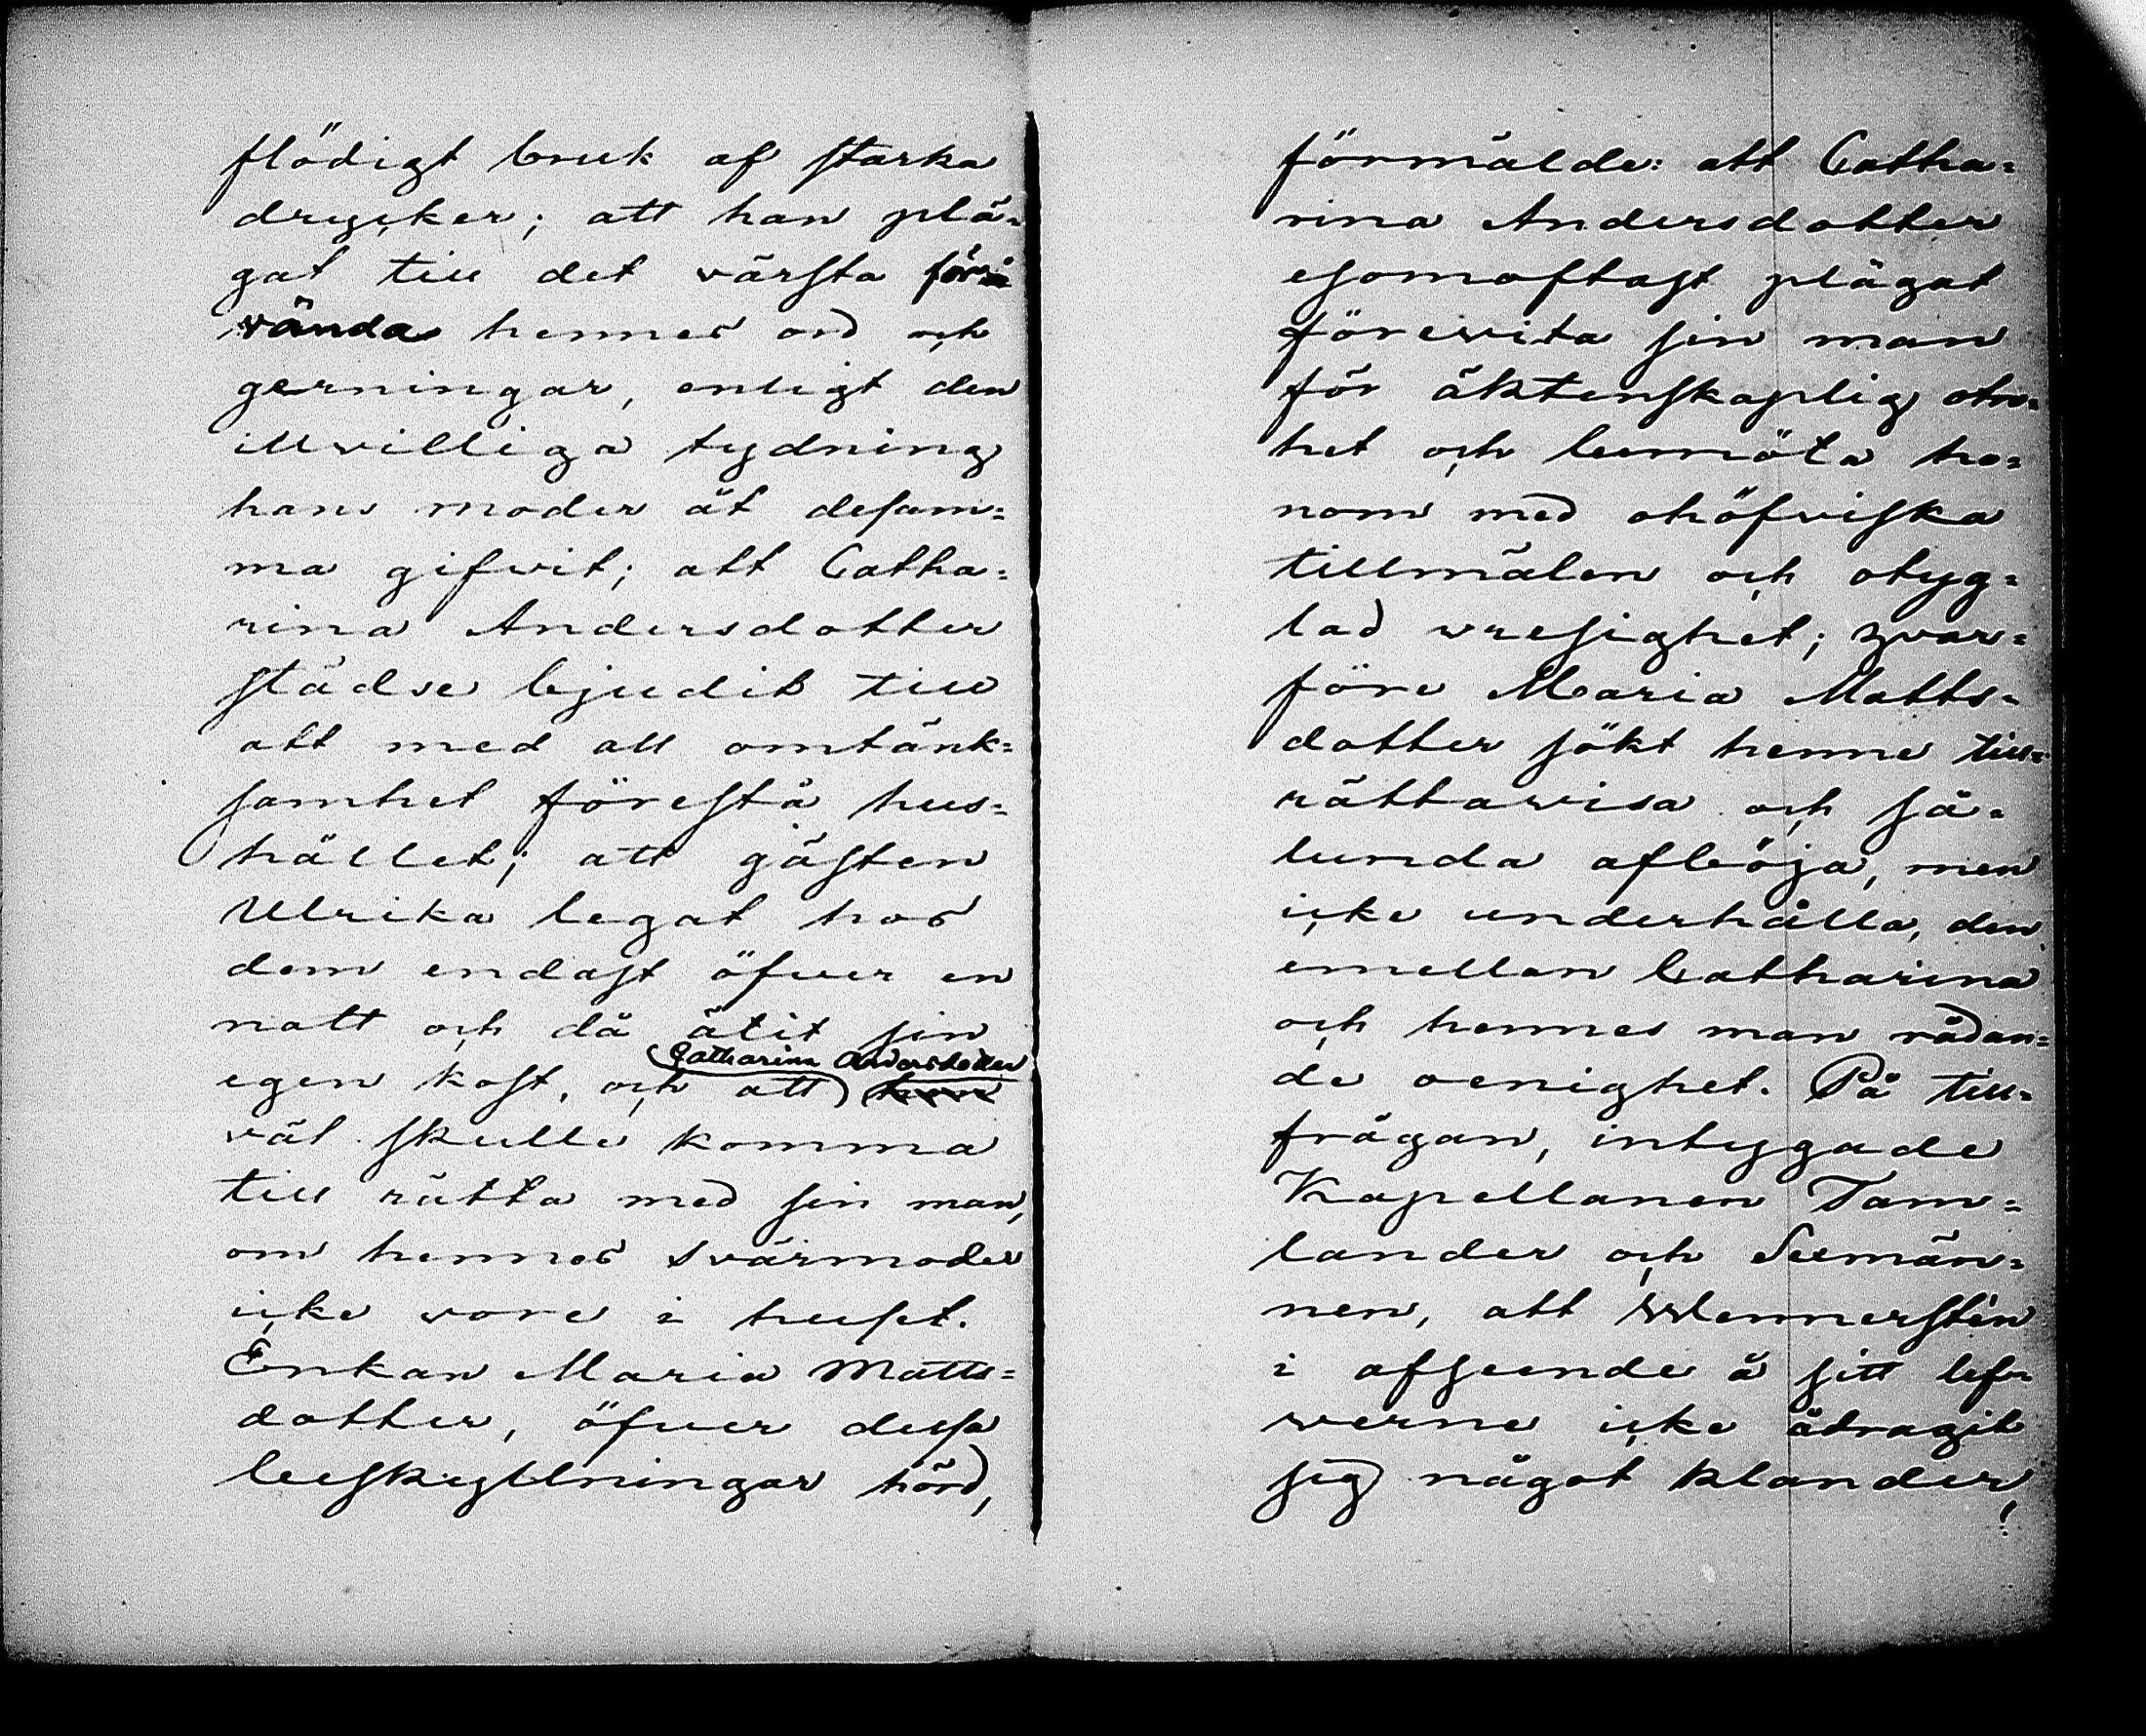 flödigt bruk af starka
drycker; att han plä=
gat till det värsta för=
vända hennes ord och
gerningar, enligt den
illvilliga tydning
hans moder åt desam=
ma gifvit; att Catha=
rina Andersdotter
städse bjudit till
att med all omtänk=
samhet förestå hus=
hållet; att gästen
Ulrika legat hos
dem endast öfver en
natt och då ätit sin
Catharina Andersdotter
egen kost, och att hon
väl skulle komma
till rätta med sin man,
om hennes svärmoder
icke vore i huset.
Enkan Maria Matts=
dotter, öfver dessa
beskyllningar hörd,
förmälde: att Catha=
rina Andersdotter
esomoftast plägat
förevita sin man
för äktenskaplig otro=
het och bemöta ho=
nom med ohöfviska
tillmälen och otyg=
lad vresighet; hvar=
före Maria Matts=
dotter sökt henne till=
rättavisa och så=
lunda afböja, men
icke underhålla, den
emellan Catharina
och hennes man rådan=
de oenighet. På till=
frågan, intygade
Kapellanen Tam=
lander och Nemän=
nen, att Wennerstén
i afseende å sitt lef=
verne icke ådragit
sig något klander,